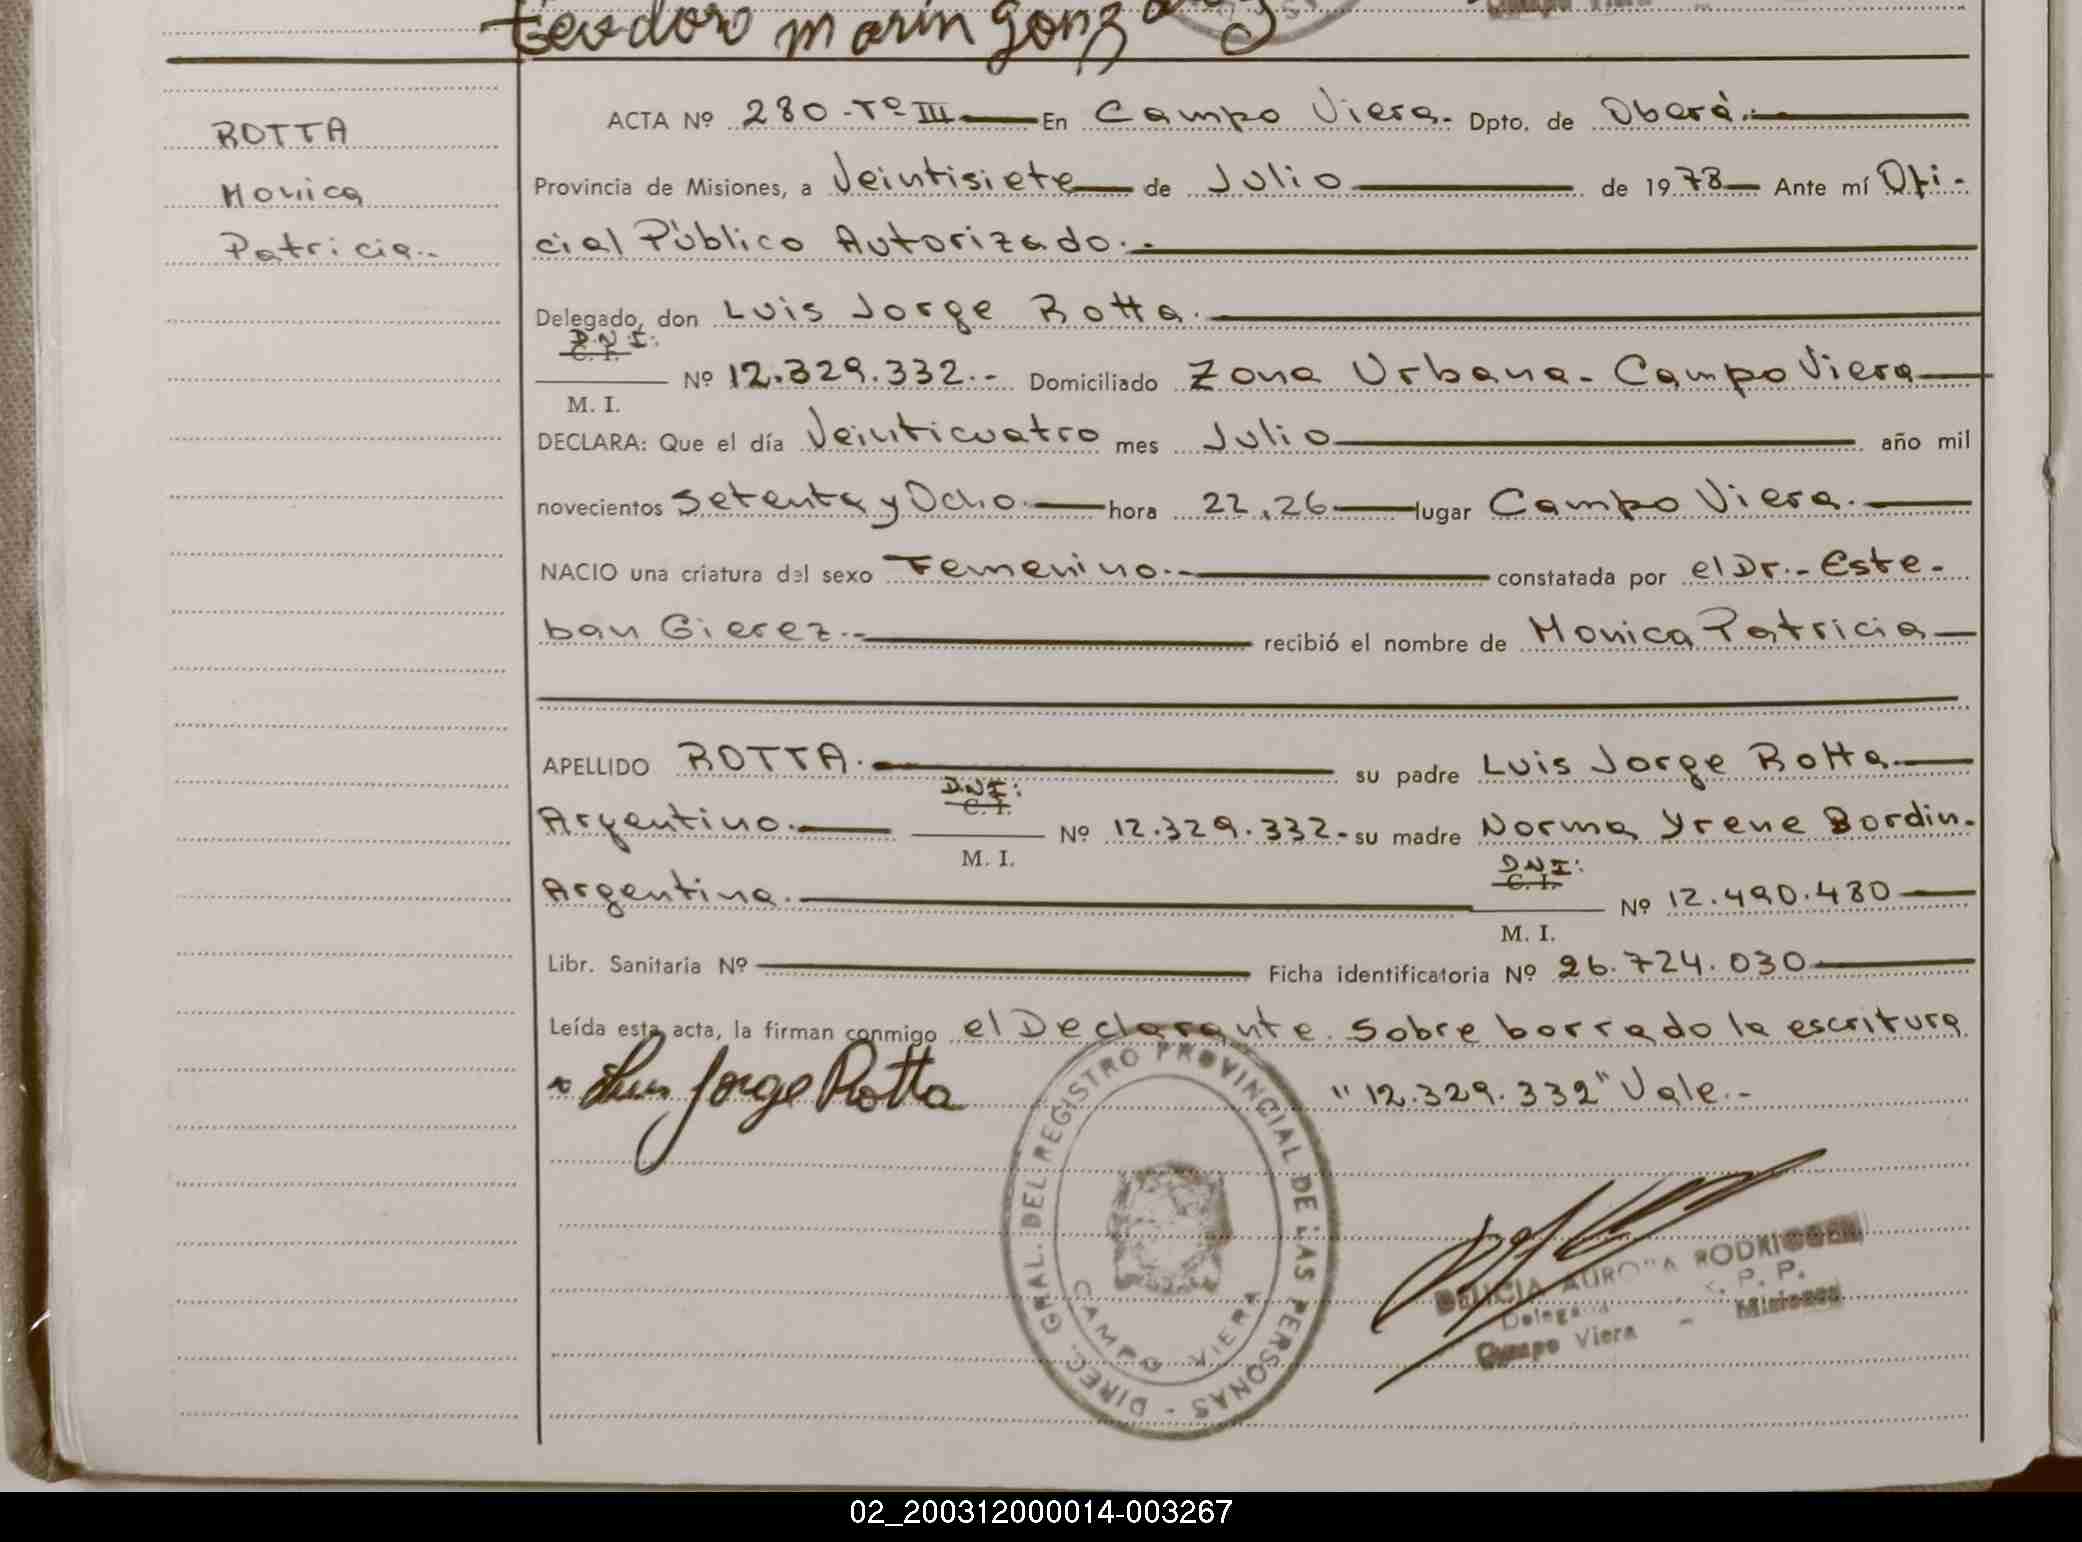 teodoro marin gonz
ROTTA
Monica
Patricia.-
ACTA Nº 280-Tº III En Campo Viera. Dpto. de Oberá.-
Provincia de Misiones, a Veintisiete de Julio de 1978 Ante mí Ofi-
cial Público Autorizado.-
Delegado, don Luis Jorge Rotta.
D.N.I:
C. I.
Nº 12.329.332.- Domiciliado Zona Urbana- Campo Viera
M. I.
DECLARA: Que el día Veinticuatro mes Julio año mil
novecientos Setenta y Ocho. hora 22,26 lugar Campo Viera.
NACIO una criatura del sexo Femenino.- constatada por el Dr.- Este-
ban Gierez.- recibió el nombre de Monica Patricia
APELLIDO ROTTA. su padre Luis Jorge Rotta
D.N.I:
C. I.
Argentino. Nº 12.329.332- su madre Norma Yrene Bordin.
M. I.
D.N.I:
C. I.
Argentina. Nº 12.490.480
M. I.
Libr. Sanitaria Nº Ficha identificatoria Nº 26.724.030
Leída esta acta, la firman conmigo el Declarante. Sobre borrado la escritura
Luis Jorge Rotta "12.329.332" Vale.-
DIREC. GRAL. DEL REGISTRO PROVINCIAL DE LAS PERSONAS -
CAMPO VIERA
AURORA RODRIGUEZ
P. P.
Campo Viera - Misiones
02_200312000014-003267